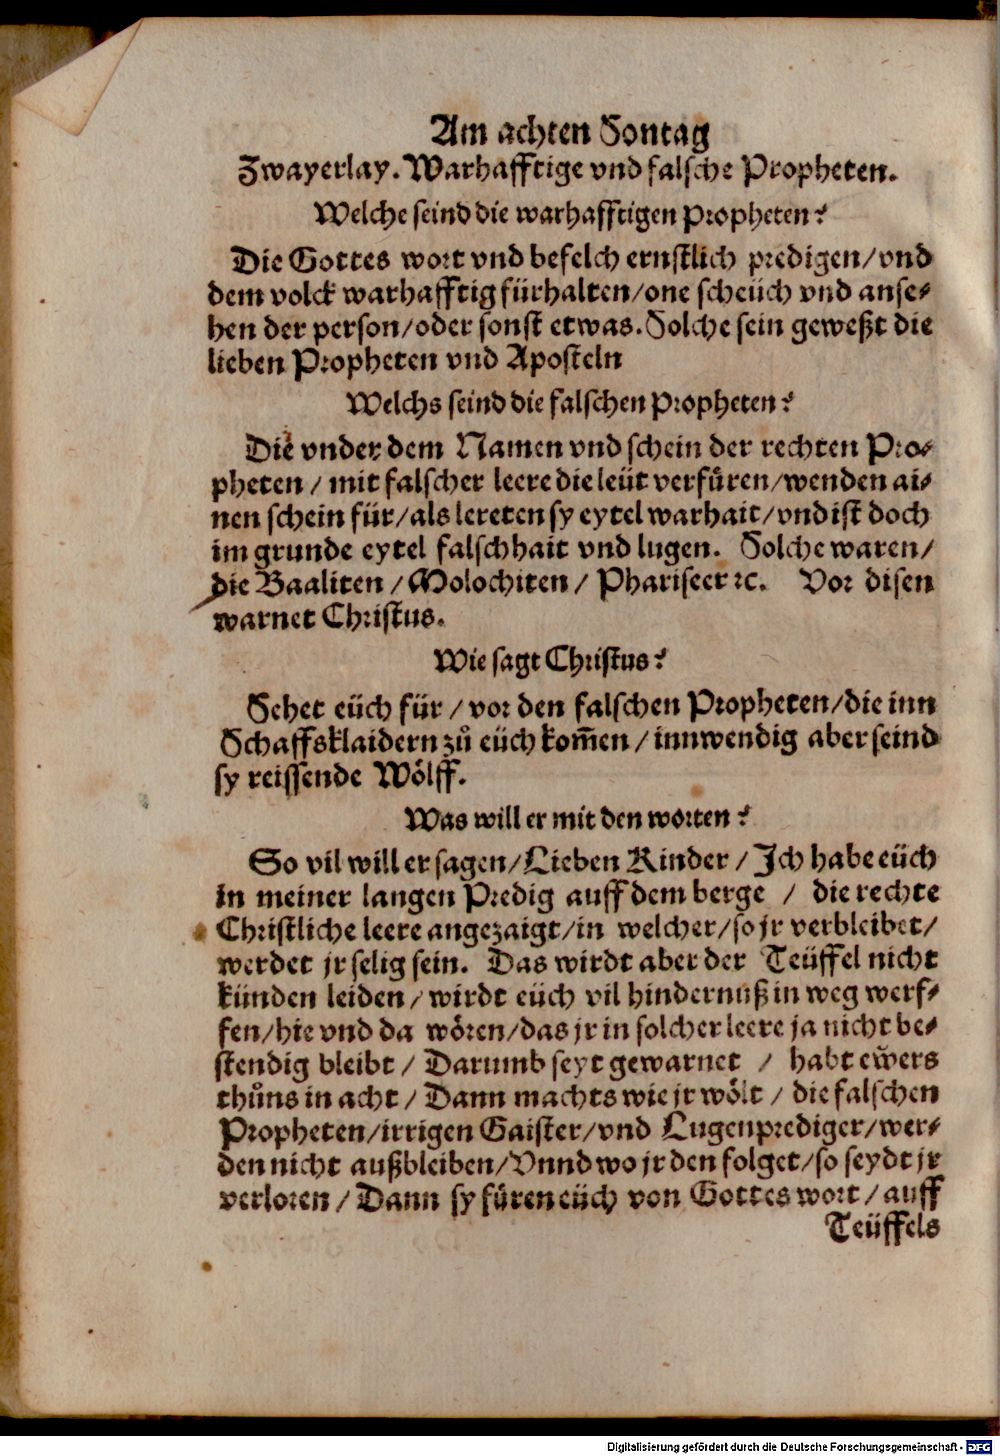 Am achten Sontag
Zwayerlay. Warhafftige vnd falsche Propheten.
Welche seind die warhafftigen Propheten?
Die Gottes wort vnd befelch ernstlich predigen/vnd
dem volck warhafftig fürhalten/one scheüch vnd anse-
hen der person/oder sonst etwas. Solche sein geweßt die
lieben Propheten vnd Aposteln
Welchs seind die falschen Propheten?
Die vnder dem Namen vnd schein der rechten Pro-
pheten / mit falscher leere die leüt verfüren/wenden ai-
nen schein für/als lereten sy eytel warhait/vnd ist doch
im grunde eytel falschhait vnd lugen. Solche waren/
die Baaliten / Molochiten / Phariseer ꝛc. Vor disen
warnet Christus.
Wie sagt Christus?
Sehet eüch für / vor den falschen Propheten/die inn
Schaffsklaidern zů eüch kom̄en / innwendig aber seind
sy reissende Wölff.
Was will er mit den worten?
So vil will er sagen/Lieben Kinder / Ich habe eüch
in meiner langen Predig auff dem berge / die rechte
Christliche leere angezaigt/in welcher/so jr verbleibet/
werdet jr selig sein. Das wirdt aber der Teüffel nicht
künden leiden / wirdt eüch vil hindernuß in weg werf-
fen/hie vnd da wören/das jr in solcher leere ja nicht be-
stendig bleibt / Darumb seyt gewarnet / habt eẅers
thůns in acht / Dann machts wie jr wölt / die falschen
Propheten/irrigen Gaister/vnd Lugenprediger/wer-
den nicht außbleiben/Vnnd wo jr den folget/so seydt jr
verloren / Dann sy füren eüch von Gottes wort / auff
Teüffels
Digitalisierung gefördert durch die Deutsche Forschungsgemeinschaft - DFG